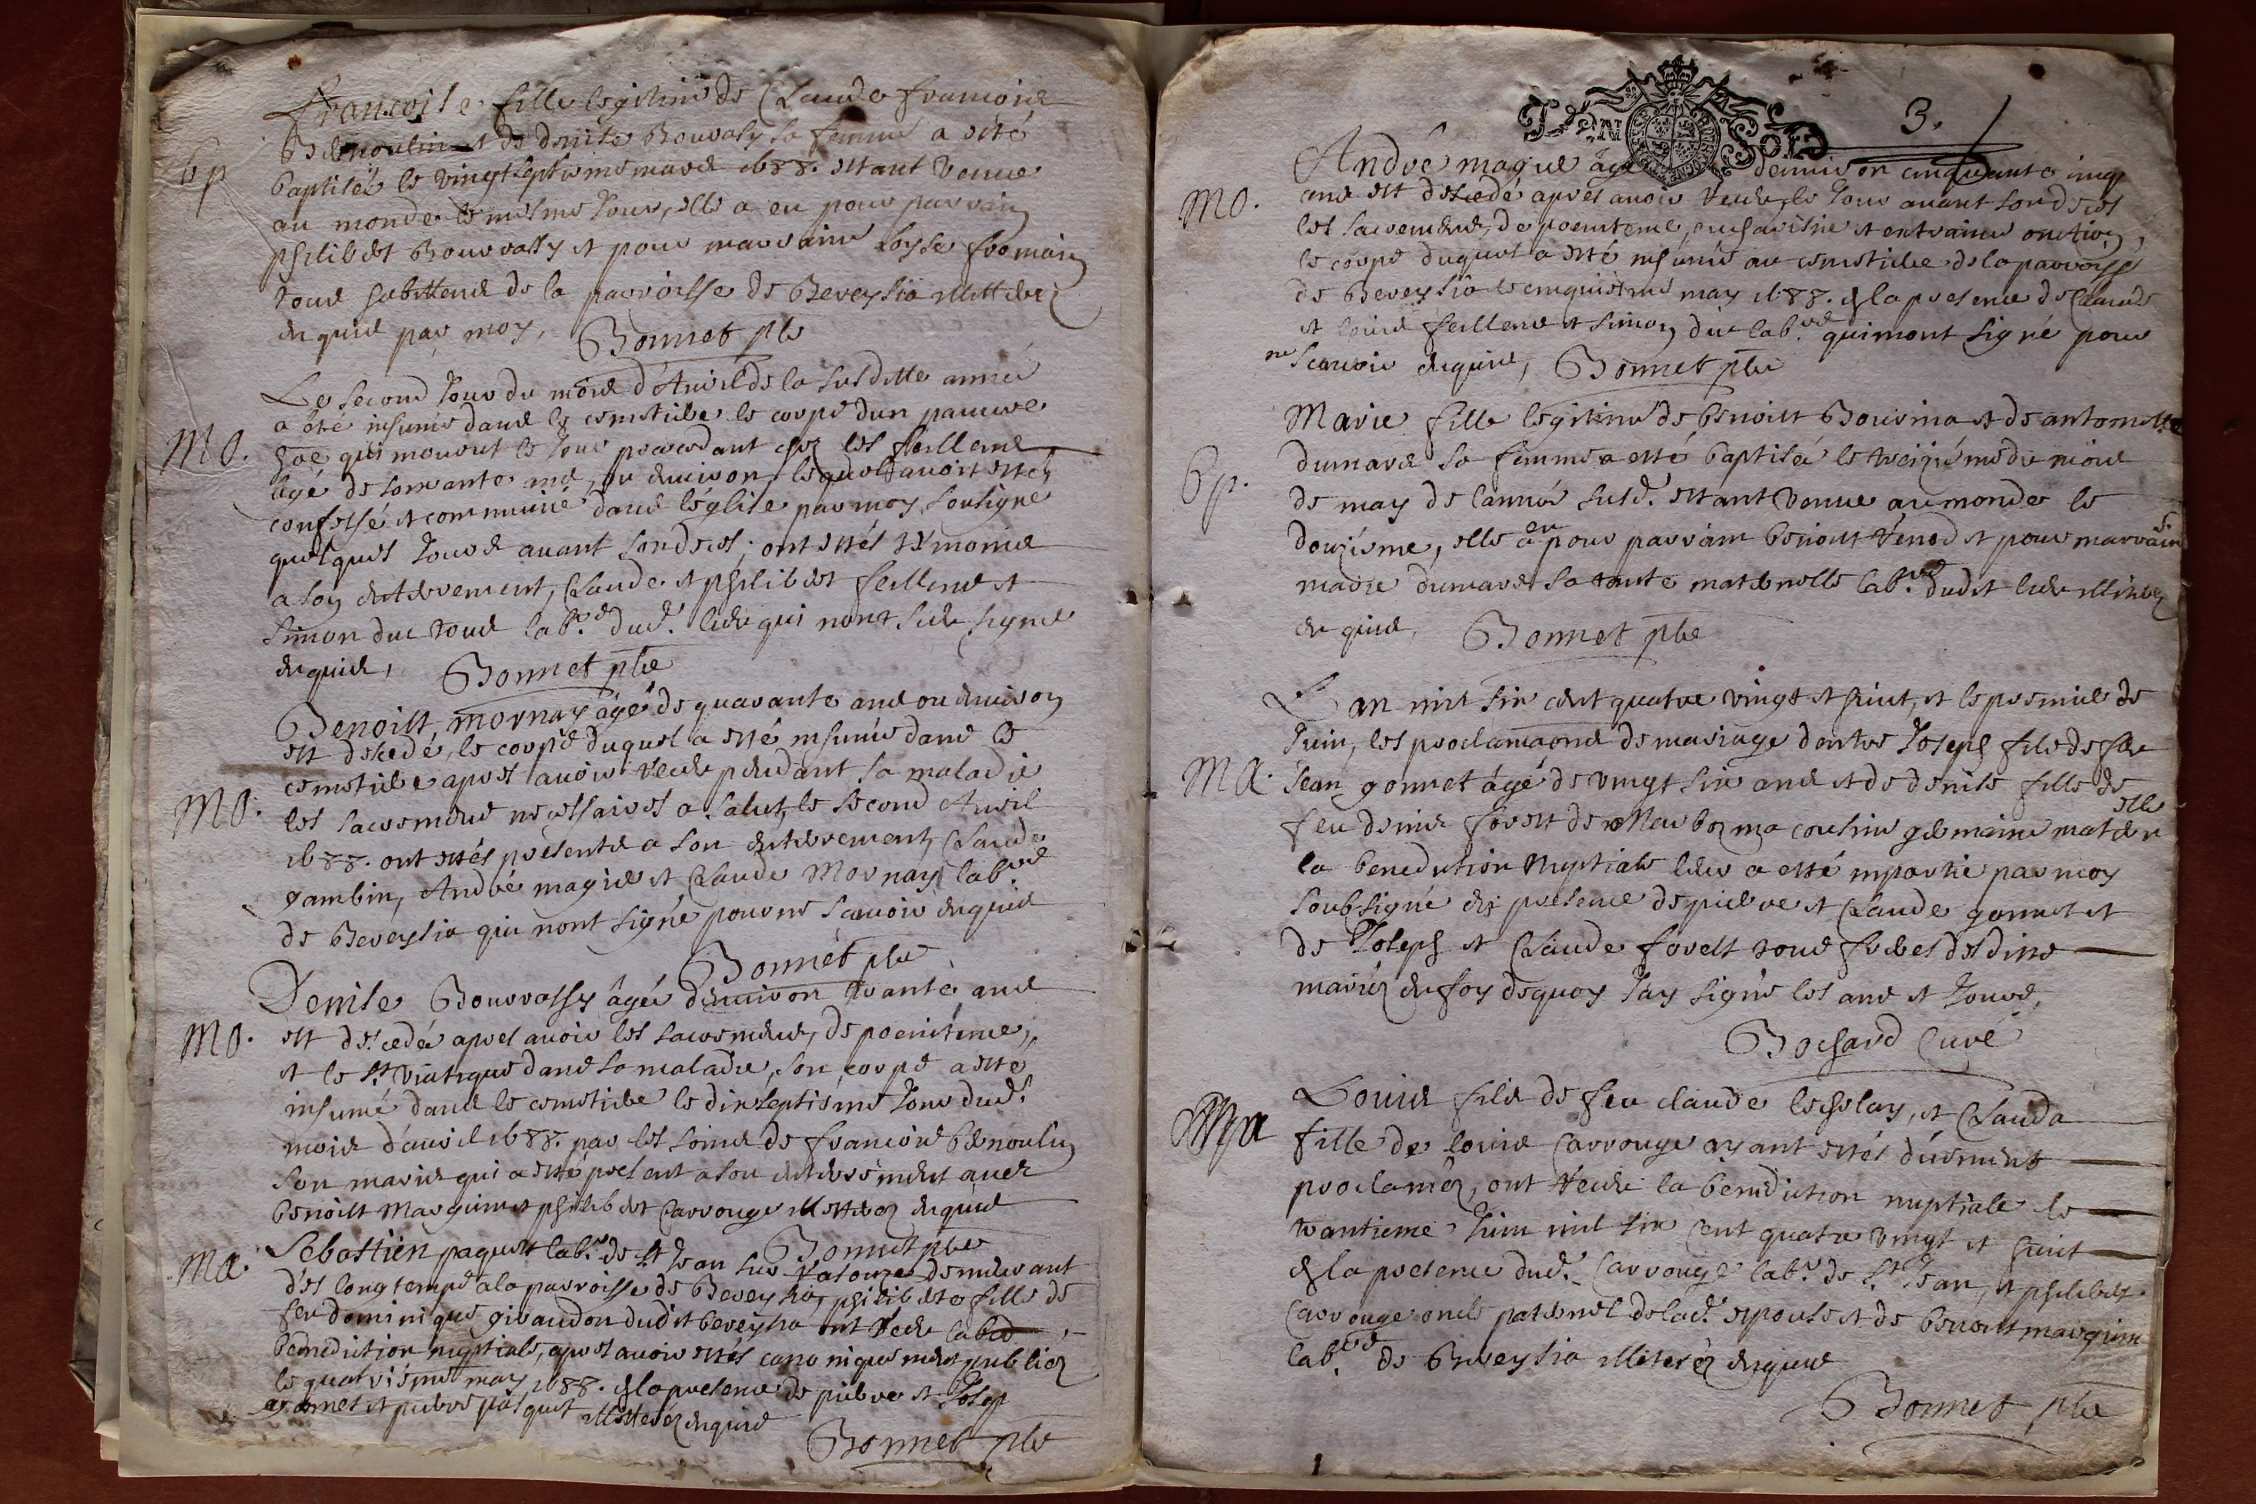 bp
Françoise fille legitime de Claude françois
Bernoulin et de denise Bouvassy sa femme a esté
baptisée le vingt septieme mars 1688. estant venue
au monde le mesme jour, elle a eu pour parrain
philibert Bourrassy et pour marraine Loyse fromain
tous habittans de la parroisse de Bereysia illitterez
enquis par moy, Bonnet pbr
Mo.
Le second jour du mois d'Avril de la susditte année
a été inhumé dans le cemetiere le corps dun pauvre
qui mourut le jour precedant chez les feillens
agé de soixante ans, ou environ, lequel avoit esté
confessé et communié dans léglise par moy, soubsigné
quelques jours avant son deces; ont estés temoins
a son enterrement, Claude et philibert feillens et
Simon duc tous labrs dudt lieu qui n'ont sceu signer
enquis, Bonnet pbr
Mo.
Benoist mornay âgé de quarante ans ou environ
est decedé, le corps duquel a esté inhumé dans le
cemetiere apres avoir receu pendant sa maladie
les sacremens necessaires a salut, le second Avril
1688. ont estés presents a son enterrement, Claude
gambin, André magies et Claude Mornay labrs
de Bereysia qui n'ont signé pour ne sçavoir enquis
Bonnet pbr
Mo.
Denise Bourrassy âgée denviron trante ans
est decedée apres avoir les sacremens, de poenitence,
et le st viatique dans sa maladie, son corps a esté
inhumé dans le cemetiere le dixseptiéme jour dudt
mois d'avril 1688. par les soins de françois bernoulin
son marit qui a esté present a son enterrement avec
benoist Marguin et philibert Carrouge illitterez enquis
Bonnet pbr
Ma.
Sebastien paquet labr de st Jean sur Vasouze demeurant
dés longtemps a la parroisse de Bereysia, philiberte fille de
feu dominique giraudon dudit bereysia ont receu la
benediction nuptiale, apres avoir estés canoniquement publiez
le quatriéme may 1688. en la presence de pierre et Josep
gonnet et pierre paquet illitterez enquis
Bonnet pbr
3.
Mo.
André magies âgé denviron cinquante cinq
ans est decedé apres avoir receu, le jour avant son deces
les sacremens, de poenitence, eucharistie et extreme onction,
le corps duquel a esté inhumé au cemetiere de la parroisse
de Bereysia le cinquiéme may 1688. en la presence de Claude
et louis feillens et Simon duc labrs qui n'ont signé pour
ne sçavoir enquis, Bonnet pbr
bp.
Marie fille legitime de benoist Bouisma et de antoinette
dumars sa femme a esté baptisée le treiziéme du mois
de may de lannée susdt estant venue au monde le
douziéme, elle a eu pour parrain benoist Venod et pour marraine
marie dumars sa tante maternelle labrs dudit lieu illiterez
enquis, Bonnet pbr
Ma.
Lan mil six cent quatre vingt et huit, et le premier de
Juin, les proclamaons de mariage dentre Joseph fils de feu
Jean gonnet âgé de vingt six ans et de denise fille de
feu denis forest de ma cousine germaine maternelle
la benediction Nuptiale leur a esté impartie par moy
soubsigné en presence de pierre et Claude gonnet et
de Joseph et Claude forest tous freres desdits
mariez en foy dequoy Jay signé les ans et jours,
Bochard Curé
Ma
Louis fils de feu claude lechelay, et Clauda
fille de louis Carrouge ayant estés düement
proclamez, ont receu la benediction nuptiale le
trantieme Juin mil six cent quatre vingt et huit
en la presence dudt Carrouge labr de st Jean, et philibert
Carrouge oncle paternel de ladt espouse et de benoist marguin
labrs de Bereysia illiterez enquis
Bonnet pbr